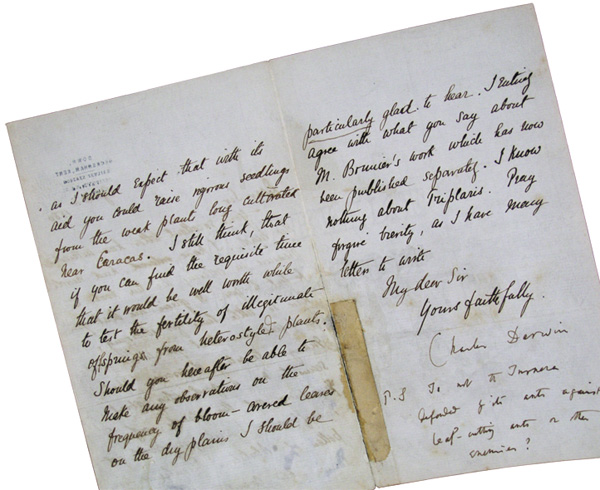 as I should expect that with its
aid you could raise vigorous seedlings
from the weak plants long cultivated
near Caracas. I still think, that
if you can find the requisite time
that it would be well worth while
to test the fertility of illegitimate
offsprings from heterostyled plants.
Should you hereafter be able to
make any observations on the
frequency of bloom-covered leaves
on the dry plains I should be
particularly glad to hear. I entirely
agree with what you say about
M. Brunier's work which has now
been published separately. I know
nothing about Triplaris. Pray
forgive brevity, as I have many
letters to write
My dear Sir
Yours faithfully.
Charles Darwin
P.S Is not the Turnera
defended by its ants against
leaf-cutting ants or other
enemies?